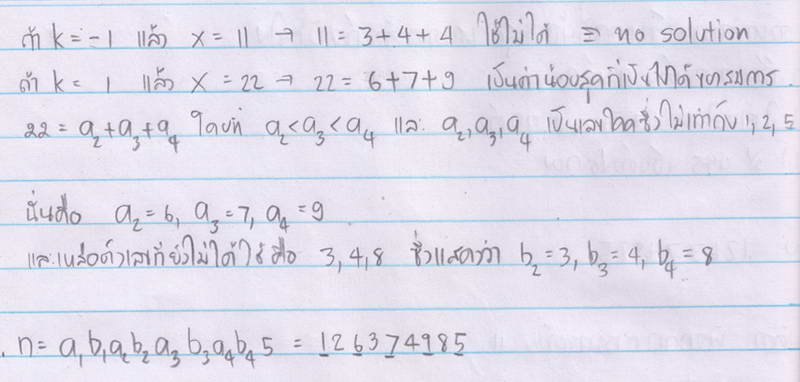 ถ้า k = -1 แล้ว x = 11 → 11 = 3+4+4 ใช้ไม่ได้ ∋ no solution
ถ้า k = 1 แล้ว x = 22 → 22 = 6+7+9 เป็นค่าน้อยสุดที่เป็นไปได้ของสมการ
22 = a₂+a₃+a₄ โดยที่ a₂<a₃<a₄ และ a₂,a₃,a₄ เป็นเลขโดดซึ่งไม่เท่ากับ 1, 2, 5
นั่นคือ a₂ = 6, a₃ = 7, a₄ = 9
และเหลือตัวเลขที่ยังไม่ได้ใช้คือ 3, 4, 8 ซึ่งแสดงว่า b₂ = 3, b₃ = 4, b₄ = 8
n = a₁b₁a₂b₂a₃b₃a₄b₄5 = 126374985